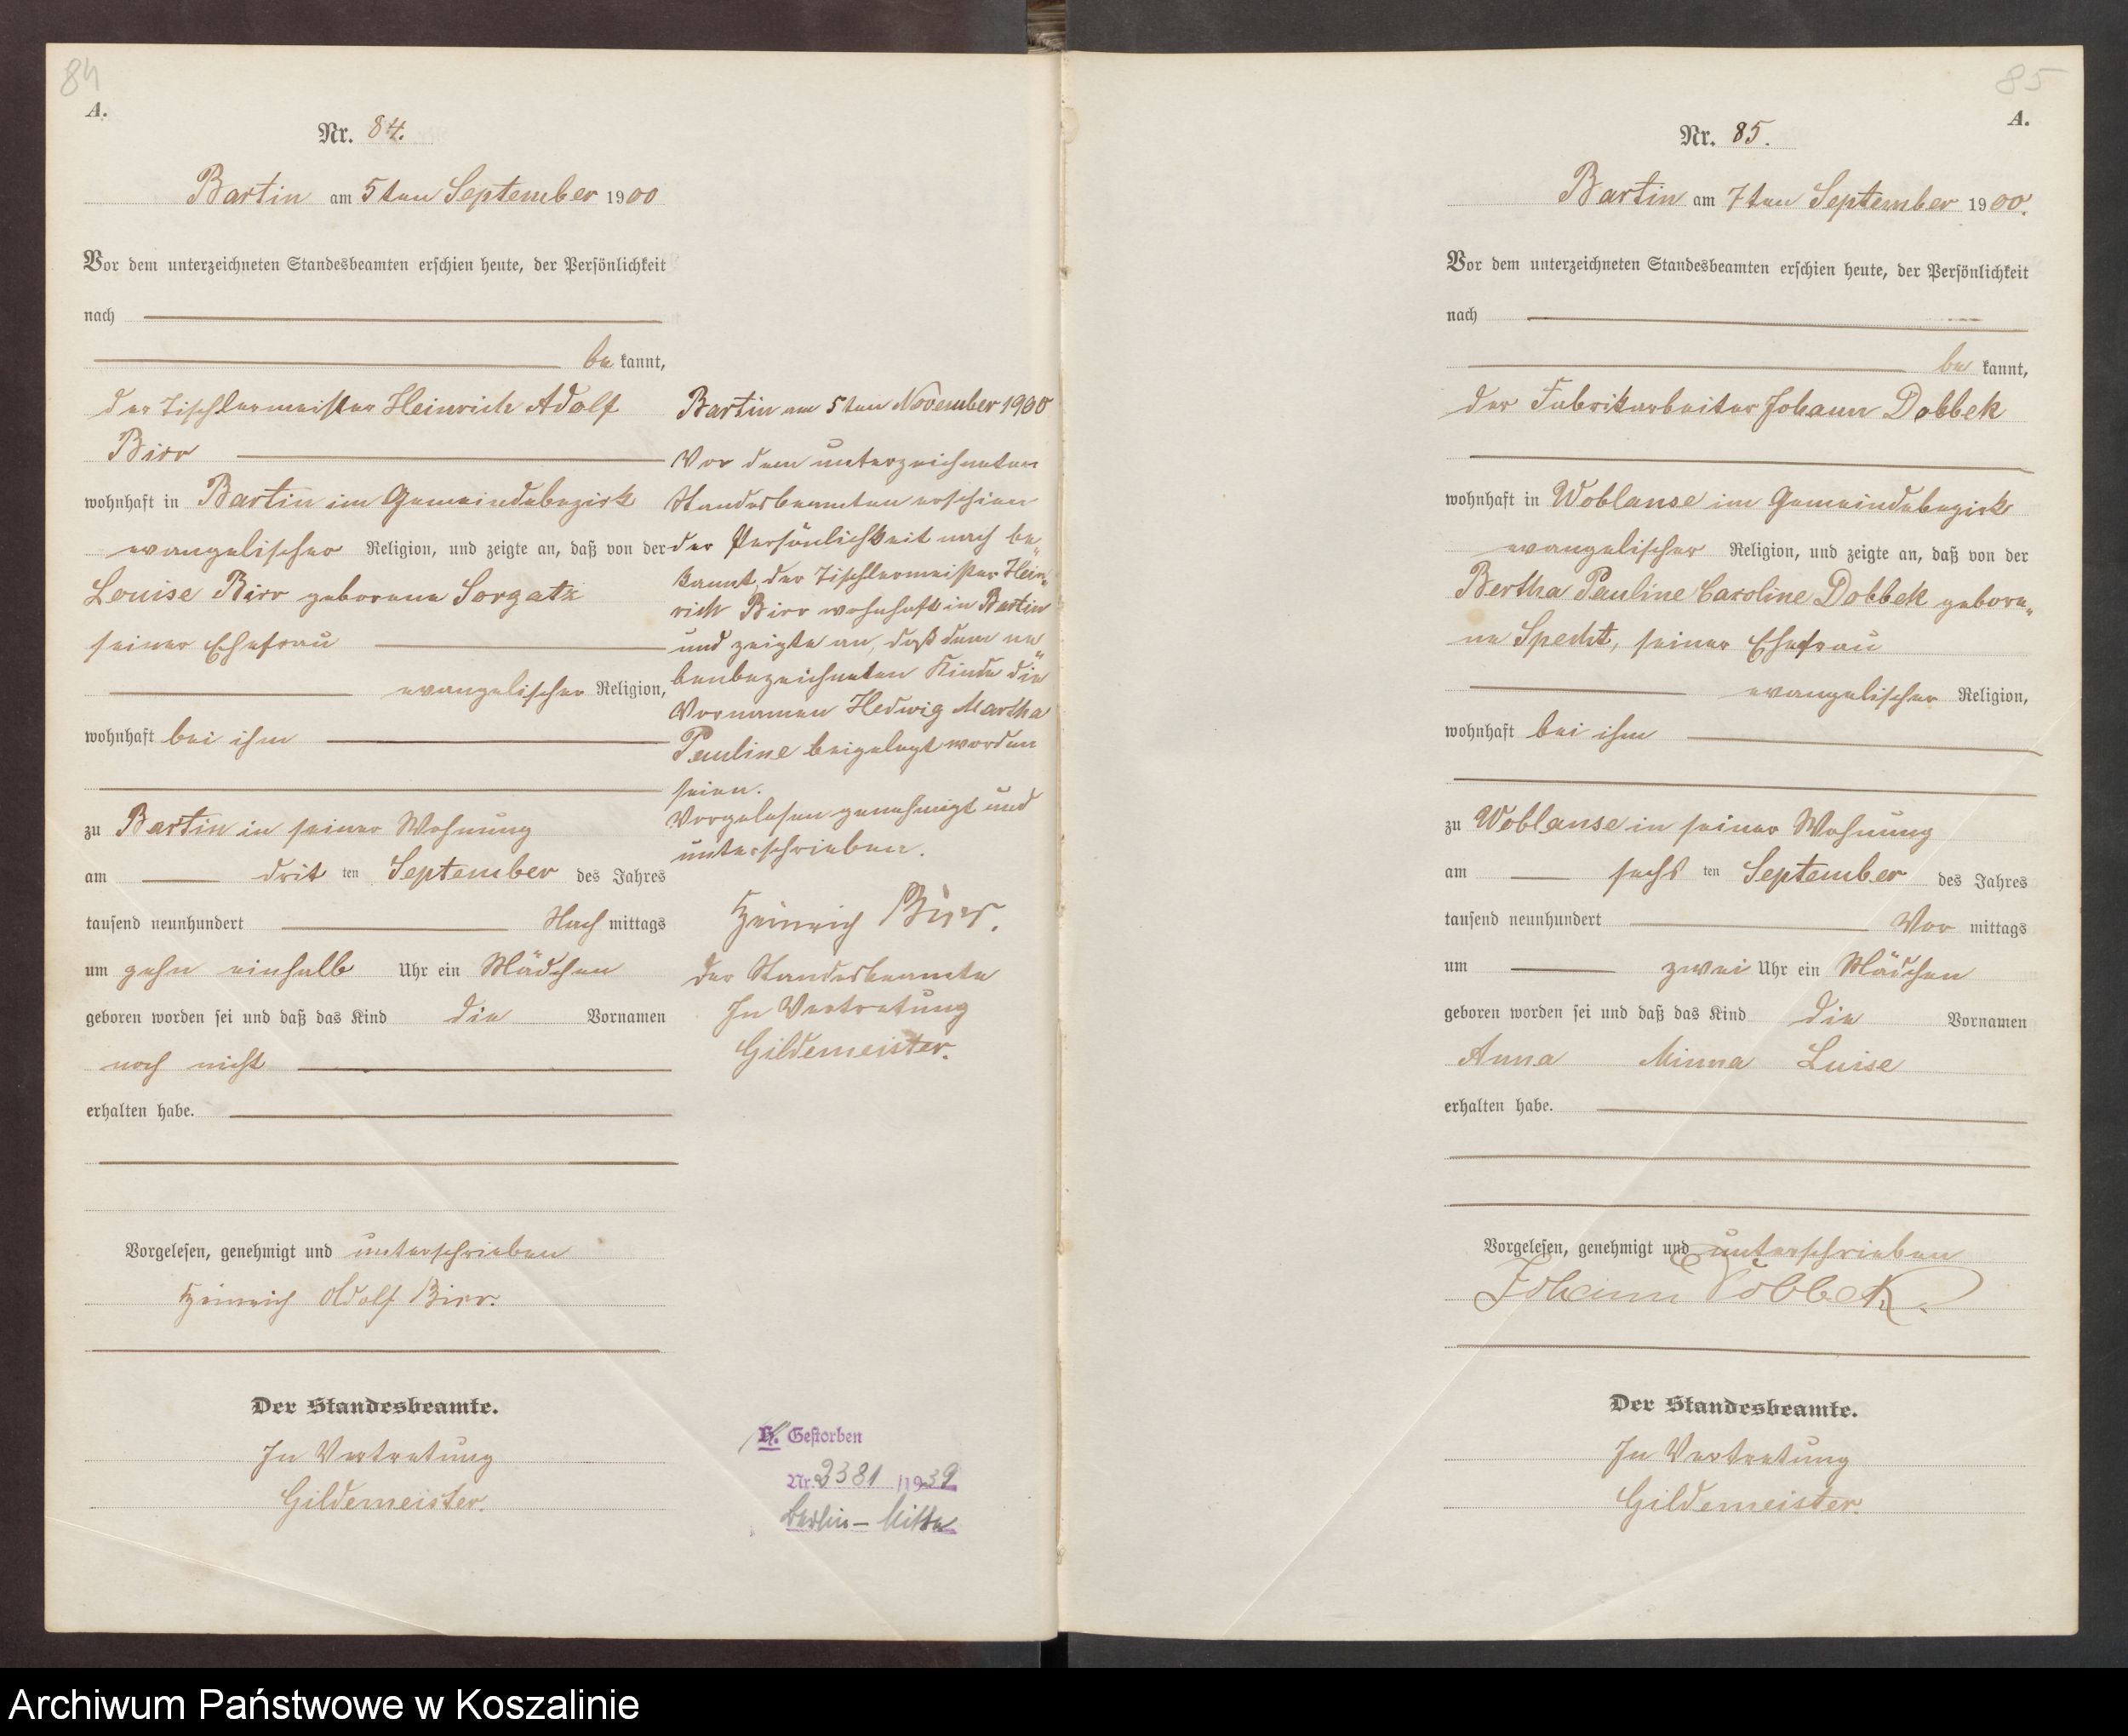 84
A.
Nr. 84.
Bartin am 5ten September 1900
Vor dem unterzeichneten Standesbeamten erschien heute, der Persönlichkeit
nach
be kannt,
der Tischlermeister Heinrich Adolf
Birr
wohnhaft in Bartin im Gemeindebezirk
evangelischer Religion, und zeigte an, daß von der
Louise Birr geborene Sorgatz
seiner Ehefrau
evangelischer Religion,
wohnhaft bei ihm
zu Bartin in seiner Wohnung
am drit ten September des Jahres
tausend neunhundert Nach mittags
um zehn einhalb Uhr ein Mädchen
geboren worden sei und daß das Kind die Vornamen
noch nicht
erhalten habe.
Vorgelesen, genehmigt und unterschrieben
Heinrich Adolf Birr.
Der Standesbeamte.
In Vertretung
Gildemeister.
Bartin am 5ten November 1900
Vor dem unterzeichneten
Standesbeamten erschien
der Persönlichkeit nach be„
kannt, der Tischlermeister Hein„
rich Birr wohnhaft in Bartin
und zeigte an, daß dem ne„
benbezeichneten Kinde die
Vornamen Hedwig Martha
Pauline beigelegt worden
seien.
Vorgelesen genehmigt und
unterschrieben.
Heinrich Birr.
Der Standesbeamte
In Vertretung
Gildemeister.
Gestorben
Nr. 2381 /1939
Berlin - Mitte
85
A.
Nr. 85.
Bartin am 7ten September 1900.
Vor dem unterzeichneten Standesbeamten erschien heute, der Persönlichkeit
nach
be kannt,
der Fabrikarbeiter Johann Dobbek
wohnhaft in Woblanse im Gemeindebezirk
evangelischer Religion, und zeigte an, daß von der
Bertha Pauline Caroline Dobbek gebore„
ne Specht, seiner Ehefrau
evangelischer Religion,
wohnhaft bei ihm
zu Woblanse in seiner Wohnung
am sechs ten September des Jahres
tausend neunhundert Vor mittags
um zwei Uhr ein Mädchen
geboren worden sei und daß das Kind die Vornamen
Anna Minna Luise
erhalten habe.
Vorgelesen, genehmigt und unterschrieben
Johann Dobbek.
Der Standesbeamte.
In Vertretung
Gildemeister.
Archiwum Państwowe w Koszalinie